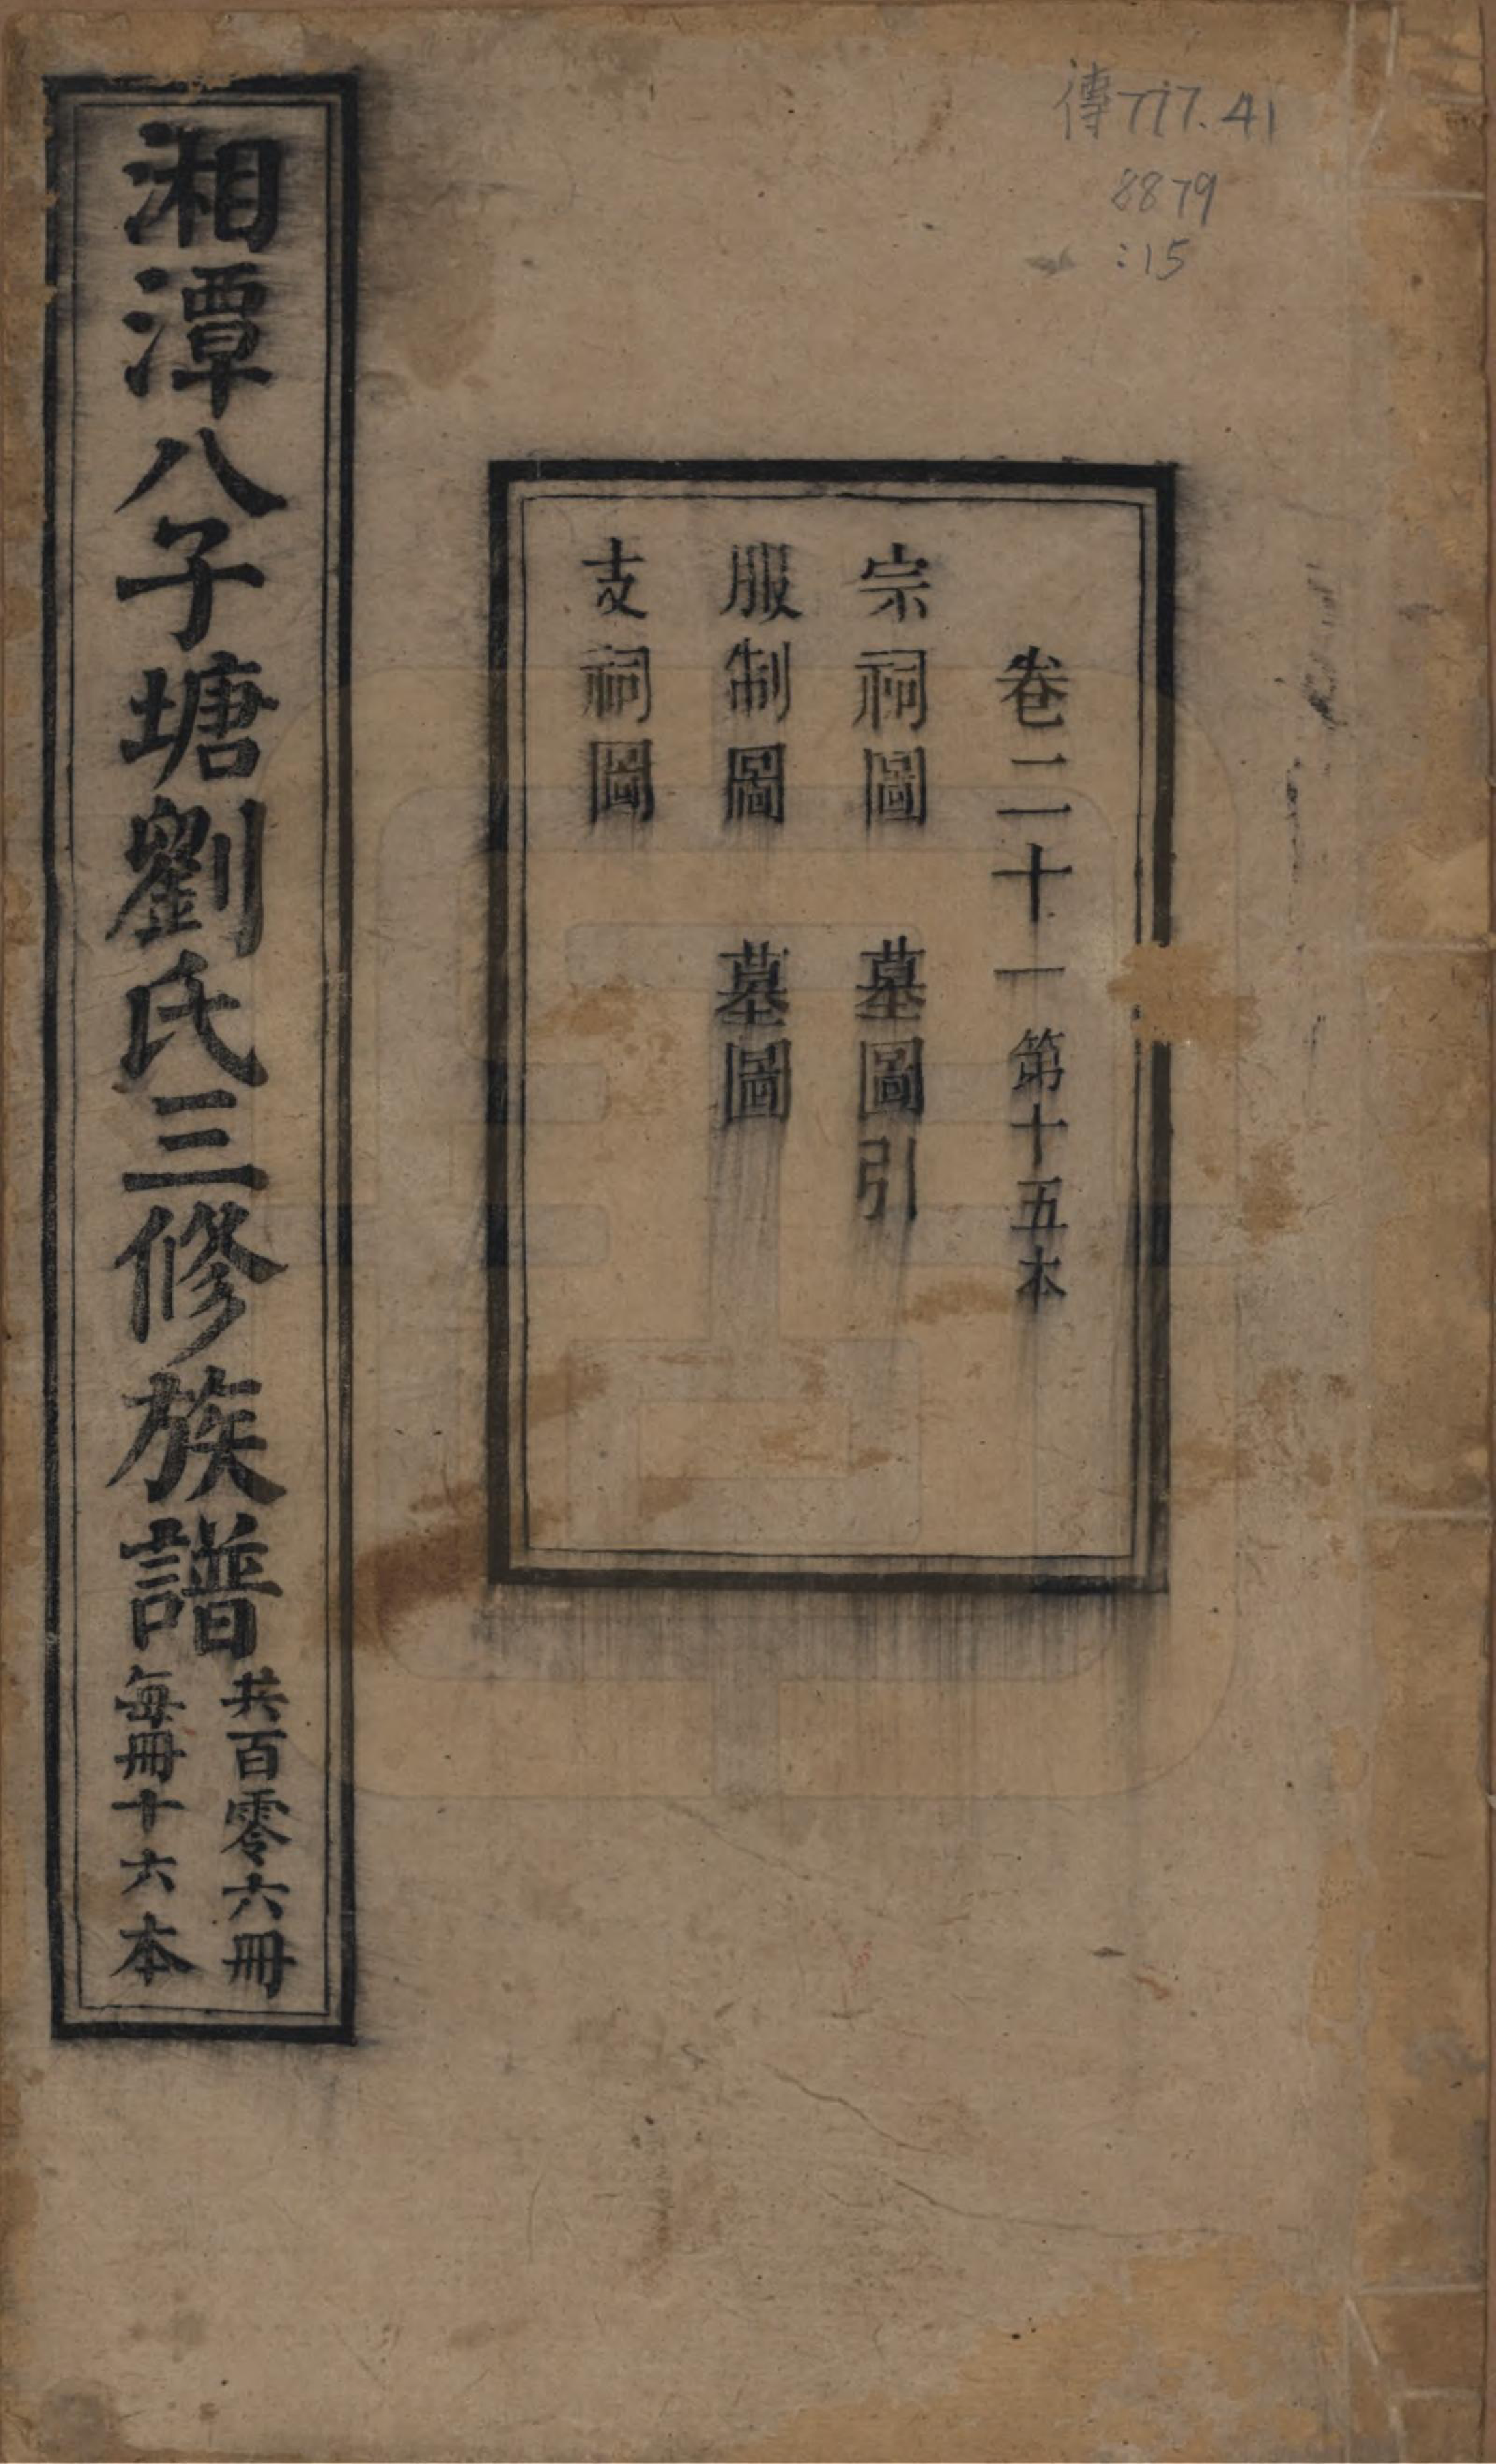 傳777.41
8879
:15
卷二十一 第十五本
宗祠圖 墓圖引
服制圖 墓圖
支祠圖
湘潭八子塘劉氏三修族譜
共百零六冊
每冊十六本